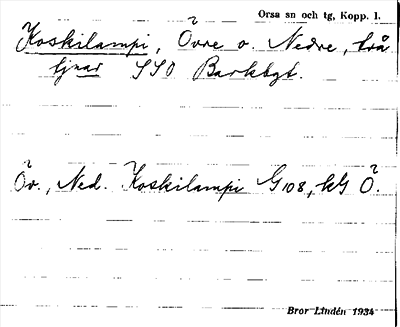 Orsa sn och tg, Kopp. l.
Koskilampi, Övre o. Nedre, två
tjnar SSO Barkbgt.
Öv., Ned. Koskilampi G108, kG Ö.
Bror Lindén 1934